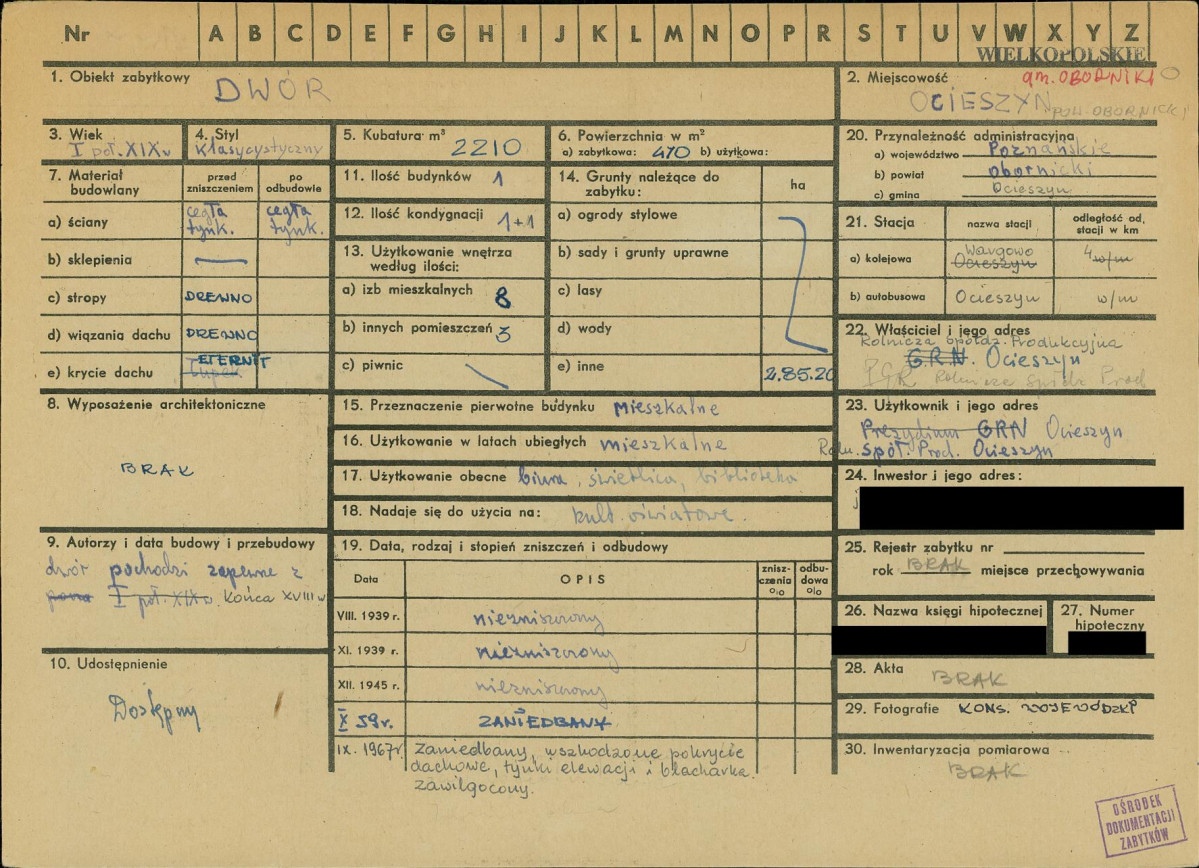 Nr A B C D E F G H I J K L M N O P R S T U V W X Y Z
WIELKOPOLSKIE
1. Obiekt zabytkowy
DWÓR
2. Miejscowość
gm. OBORNIKI
OCIESZYN pow. OBORNICKI
3. Wiek
I poł. XIX w
4. Styl
klasycystyczny
5. Kubatura m³
2210
6. Powierzchnia w m²
a) zabytkowa: 470 b) użytkowa:
7. Materiał budowlany
przed zniszczeniem
po odbudowie
a) ściany
cegła tynk.
cegła tynk.
b) sklepienia —
c) stropy DREWNO
d) wiązania dachu DREWNO
e) krycie dachu
ETERNIT
łupek
8. Wyposażenie architektoniczne
BRAK
9. Autorzy i data budowy i przebudowy
dwór pochodzi zapewne z
I poł. XIX w. końca XVIII w
10. Udostępnienie
Dostępny
11. Ilość budynków 1
12. Ilość kondygnacji 1+1
13. Użytkowanie wnętrza
według ilości:
a) izb mieszkalnych 8
b) innych pomieszczeń 3
c) piwnic
14. Grunty należące do
zabytku:
ha
a) ogrody stylowe
b) sady i grunty uprawne
c) lasy
d) wody
e) inne 2.85.20
15. Przeznaczenie pierwotne budynku mieszkalne
16. Użytkowanie w latach ubiegłych mieszkalne
17. Użytkowanie obecne biura, świetlica, biblioteka
18. Nadaje się do użycia na: kult. oświatowe.
19. Data, rodzaj i stopień zniszczeń i odbudowy
Data
OPIS
znisz-
czenia
%
odbu-
dowa
%
VIII. 1939 r. niezniszczony
XI. 1939 r. niezniszczony
XII. 1945 r. niezniszczony
X 59 r. ZANIEDBANY
IX. 1967 r. Zaniedbany, uszkodzone pokrycie
dachowe, tynki elewacji i blacharka.
zawilgocony.
20. Przynależność administracyjna
a) województwo Poznańskie
b) powiat obornicki
c) gmina Ocieszyn
21. Stacja
nazwa stacji
odległość od.
stacji w km
a) kolejowa
Wargowo
Ocieszyn
4 w/m
b) autobusowa Ocieszyn w/m
22. Właściciel i jego adres
Rolnicza Spółdz. Produkcyjna
G.R.N. Ocieszyn
PGR Rolnicza Spółdz Prod
23. Użytkownik i jego adres
Prezydium GRN Ocieszyn
Roln. Spół. Prod. Ocieszyn
24. Inwestor i jego adres:
25. Rejestr zabytku nr
rok BRAK miejsce przechowywania
26. Nazwa księgi hipotecznej
27. Numer
hipoteczny
28. Akta
BRAK
29. Fotografie KONS. WOJEWÓDZKI
30. Inwentaryzacja pomiarowa
BRAK
OŚRODEK
DOKUMENTACJI
ZABYTKÓW